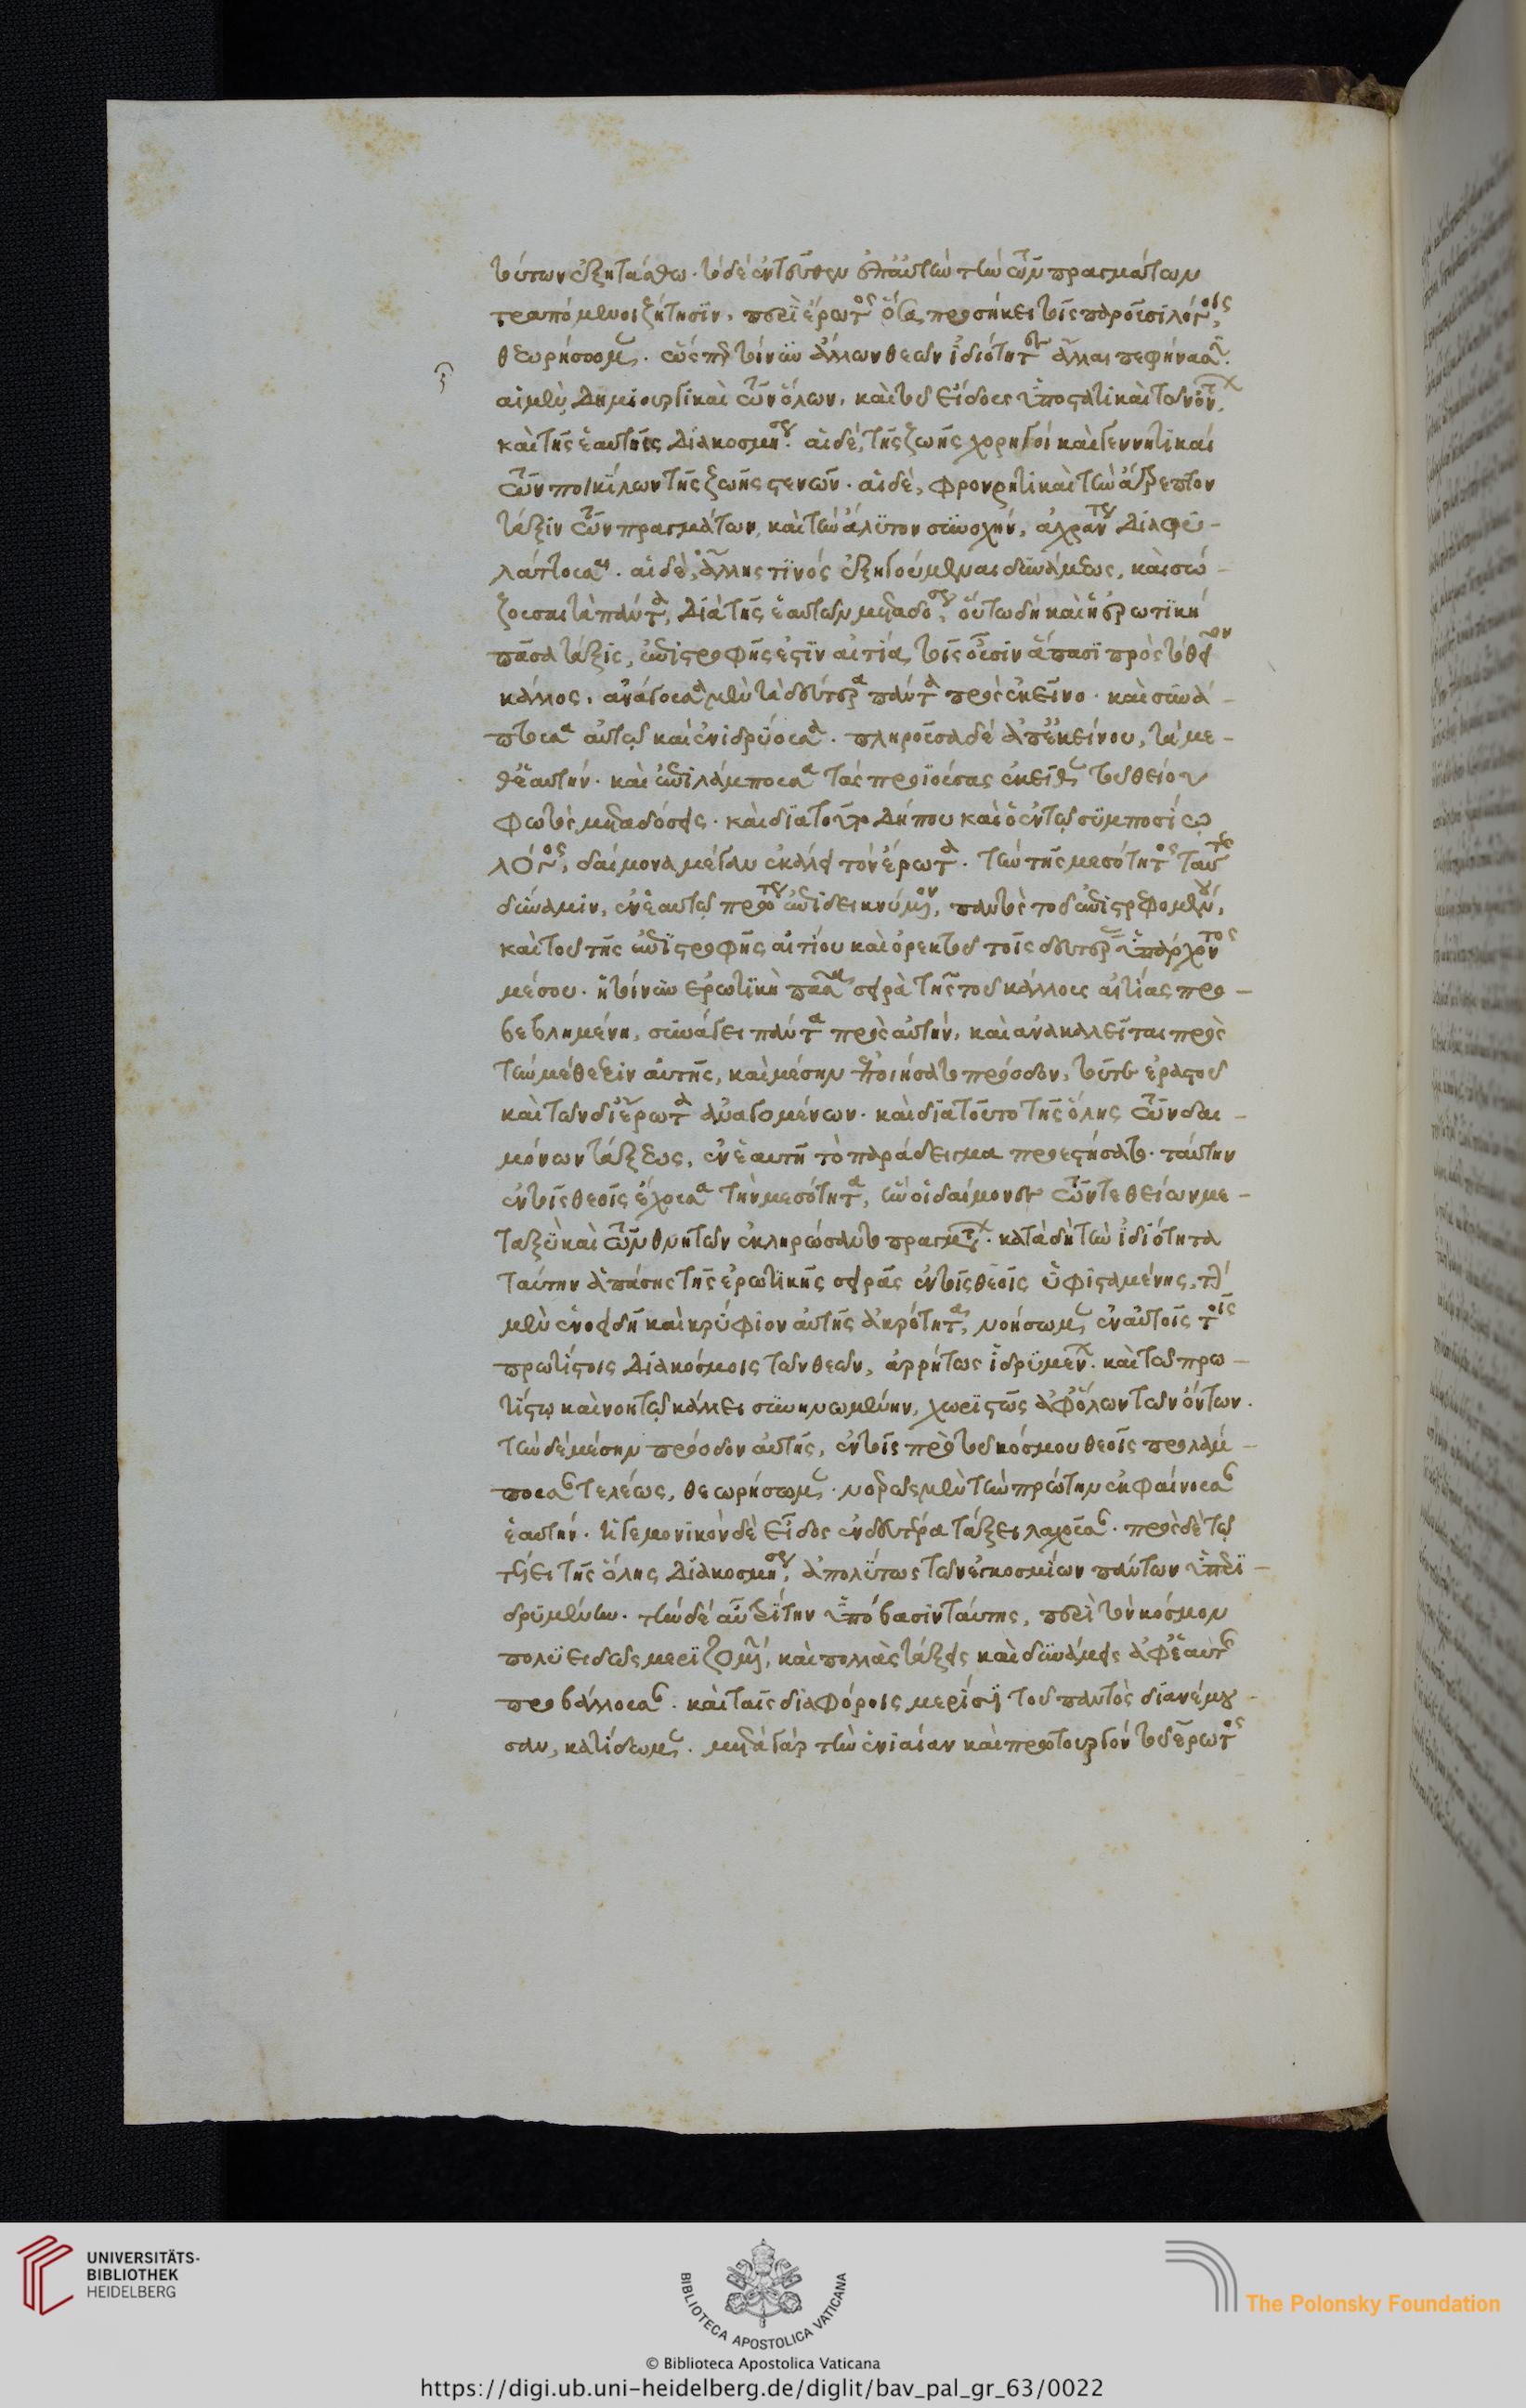 τούτων ἐξητάσθω. τὸ δὲ ἐντεῦθεν ἐπ' αὐτὴν τὴν τῶν πραγμάτων
τραπόμενοι ζήτησιν, περὶ ἔρωτος ὅσα προσήκει τοῖς παροῦσι λόγοις,
θεωρήσωμεν. ὥσπερ τοίνυν ἄλλων θεῶν ἰδιότητες ἄλλαι πεφήνασιν.
αἱ μὲν δημιουργικαὶ τῶν ὅλων, καὶ τοῦ εἴδους ὑποστατικαὶ τῶν ὄντων,
καὶ τῆς ἑαυτῆς διακοσμήσεως. αἱ δὲ, τῆς ζωῆς χορηγοὶ καὶ γεννητικαὶ
τῶν ποικίλων τῆς ζωῆς γενῶν. αἱ δὲ, φρουρητικαὶ τὴν ἄτρεπτον
τάξιν τῶν πραγμάτων, καὶ τὴν ἄλυτον συνοχὴν, ἀχράντως διαφυ-
λάττουσαι. αἱ δὲ, ἄλλης τινὸς ἐξηγούμεναι δυνάμεως, καὶ σώ-
ζουσαι τὰ πάντα, διὰ τῆς ἑαυτῶν μεταδόσεως, οὕτω δὴ καὶ ἡ ἐρωτικὴ
πᾶσα τάξις, ἐπιστροφῆς ἐστὶν αἰτία, τοῖς οὖσιν ἅπασι πρὸς τὸ θεῖον
κάλλος, ἀνάγουσα μὲν τὰ δεύτερα πάντα πρὸς ἐκεῖνο. καὶ συνά-
πτουσα αὐτῷ καὶ ἐνιδρύουσα. πληροῦσα δὲ ἀπ' ἐκείνου, τὰ με-
θ' ἑαυτήν. καὶ ἐπιλάμπουσα τὰς προϊούσας ἐκεῖθεν τοῦ θείου
φωτὸς μεταδόσεις. καὶ διὰ τοῦτο δήπου καὶ ὁ ἐν τῷ συμποσίῳ
λόγος, δαίμονα μέγαν ἐκάλει τὸν ἔρωτα. τὴν τῆς μεσότητος ταύτης
δύναμιν, ἐν ἑαυτῷ πρώτως ἐπιδεικνύμενον, παντὸς τοῦ ἐπιστρεφομένου,
καὶ τοῦ τῆς ἐπιστροφῆς αἰτίου καὶ ὀρεκτοῦ τοῖς δευτέροις ὑπάρχοντος
μέσου. ἡ τοίνυν ἐρωτικὴ πᾶσα σειρὰ τῆς τοῦ κάλλους αἰτίας προ-
βεβλημένη, συνάγει πάντα πρὸς αὐτὴν, καὶ ἀνακαλεῖται πρὸς
τὴν μέθεξιν αὐτῆς, καὶ μέσην πεποιήσατο πρόοδον, τοῦ τε ἐραστοῦ
καὶ τῶν δι' ἔρωτα ἀναγομένων. καὶ διὰ τοῦτο τῆς ὅλης τῶν δαι-
μόνων τάξεως, ἐν ἑαυτῇ τὸ παράδειγμα προεστήσατο. ταύτην
ἐν τοῖς θεοῖς ἔχουσα τὴν μεσότητα, ἣν οἱ δαίμονες τῶν τε θείων με-
ταξὺ καὶ τῶν θνητῶν ἐκληρώσαντο πραγμάτων. κατὰ δὴ τὴν ἰδιότητα
ταύτην ἁπάσης τῆς ἐρωτικῆς σειρᾶς ἐν τοῖς θεοῖς ὑφισταμένης, τὴν
μὲν ἑνοειδῆ καὶ κρύφιον αὐτῆς ἀκρότητα, νοήσωμεν ἐν αὐτοῖς τοῖς
πρωτίστοις διακόσμοις τῶν θεῶν, ἀρρήτως ἱδρυμένην. καὶ τῷ πρω-
τίστῳ καὶ νοητῷ κάλλει συνηνωμένην, χωριστῶς ἀφ' ὅλων τῶν ὄντων.
τὴν δὲ μέσην πρόοδον αὐτῆς, ἐν τοῖς πρὸ τοῦ κόσμου θεοῖς προλάμ-
πουσαν τελέως, θεωρήσωμεν. νοερῶς μὲν τὴν πρώτην ἐκφαίνουσαν
ἑαυτήν. ἡγεμονικὸν δὲ εἶδος ἐν δευτέρᾳ τάξει λαχοῦσαν. πρὸς δὲ τῷ
τέλει τῆς ὅλης διακοσμήσεως, ἀπολύτως τῶν ἐγκοσμίων πάντων ὑπερι-
δρυμένην. τὴν δὲ αὖ τρίτην ὑπόβασιν ταύτης, περὶ τὸν κόσμον
πολυειδῶς μεριζομένην, καὶ πολλὰς τάξεις καὶ δυνάμεις ἀφ' ἑαυτῆς
προβάλλουσαν. καὶ ταῖς διαφόροις μερίσι τοῦ παντὸς διανέμου-
σαν, κατίδωμεν. μετὰ γὰρ τὴν ἑνιαίαν καὶ πρωτουργὸν τοῦ ἔρωτος
UNIVERSITÄTS-
BIBLIOTHEK
HEIDELBERG
BIBLIOTECA APOSTOLICA VATICANA
The Polonsky Foundation
© Biblioteca Apostolica Vaticana
https://digi.ub.uni-heidelberg.de/diglit/bav_pal_gr_63/0022